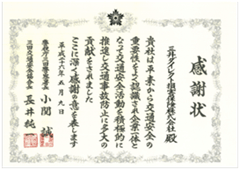 感謝状
三井ダイレクト損害保険株式会社 殿
貴社は平素から交通安全の
重要性をよく認識され企業一体と
なって交通安全活動を積極的に
推進し交通事故防止に多大の
貢献をされました
ここに深く感謝の意を表します
平成二十八年 月九日
小関 誠
長井 純一